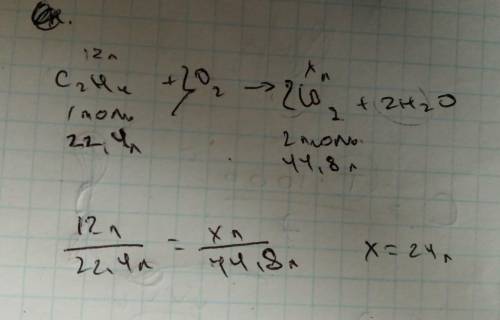 12л xл
C₂H₄ + 3O₂ → 2CO₂ + 2H₂O
1 моль 2 моль
22,4л 44,8л
12л/22,4л = xл/44,8л x=24л